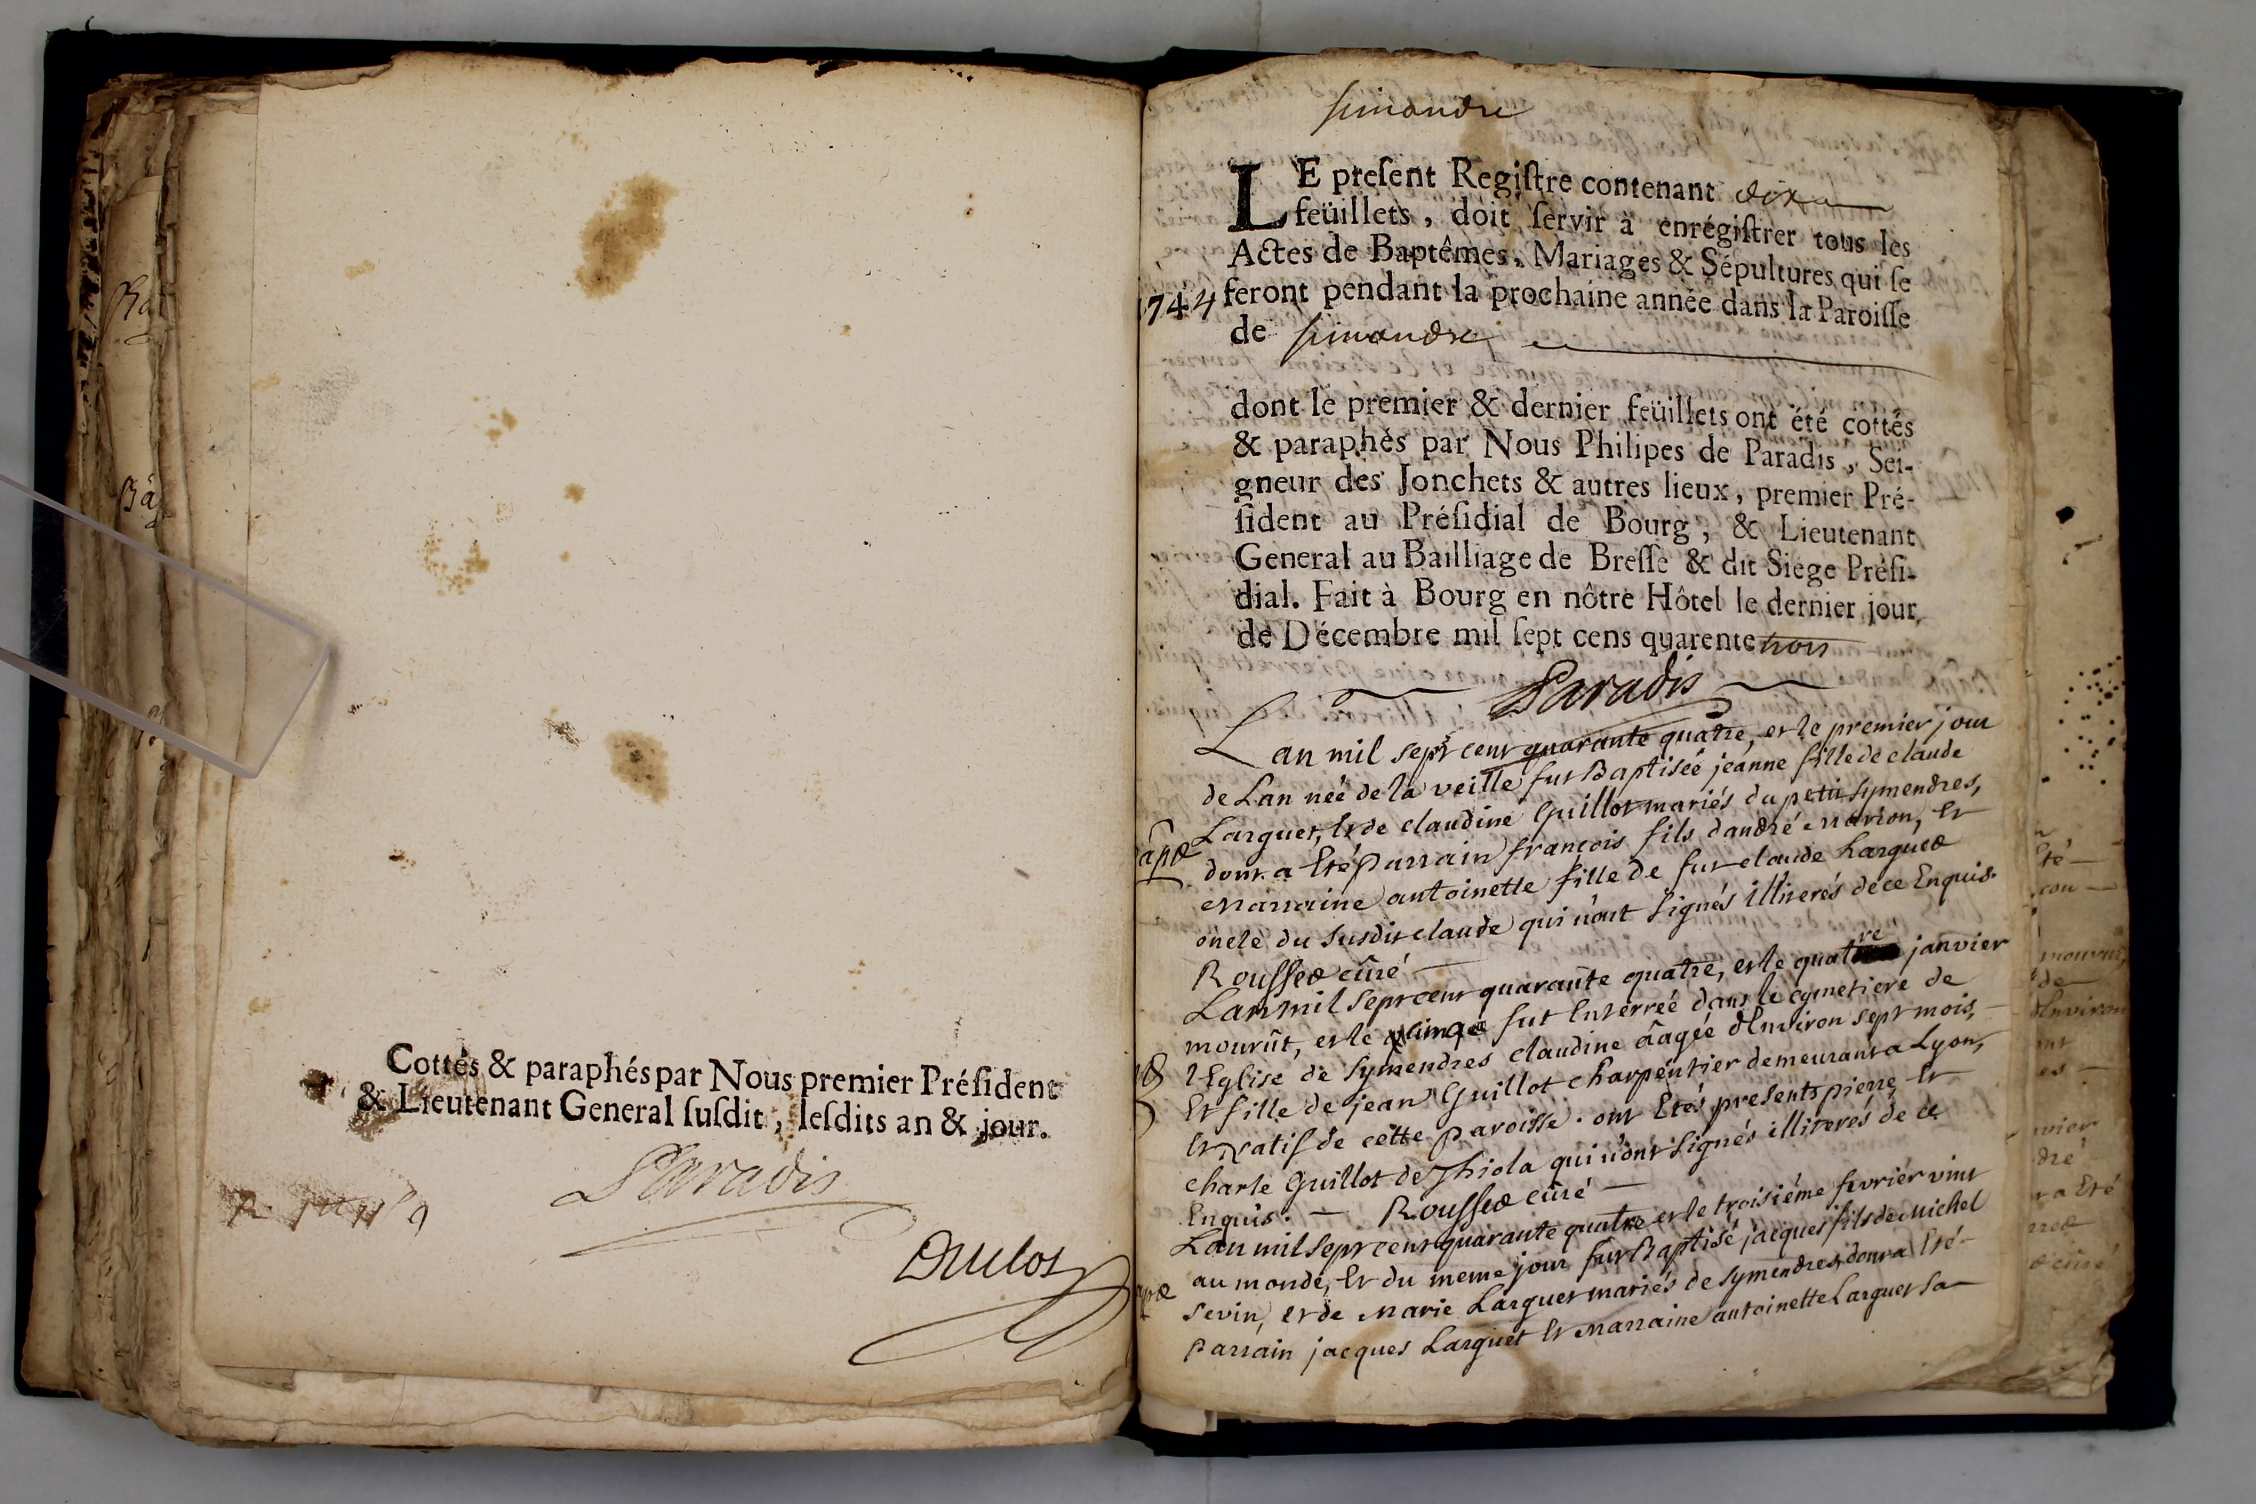 Cottés & paraphés par Nous premier Préſident
& Lieutenant General ſuſdit, leſdits an & jour.
Paradis
Duclos
simandre
LE preſent Regiſtre contenant dix
feüillets, doit ſervir à enrégiſtrer tous les
Actes de Baptêmes, Mariages & Sépultures qui ſe
1744 feront pendant la prochaine année dans la Paroiſſe
de simandre
dont le premier & dernier feüillets ont été cottés
& paraphés par Nous Philipes de Paradis, Sei-
gneur des Jonchets & autres lieux, premier Pré-
ſident au Préſidial de Bourg, & Lieutenant
General au Bailliage de Breſſe & dit Siége Préſi-
dial. Fait à Bourg en nôtre Hôtel le dernier jour
de Décembre mil ſept cens quarente trois
Paradis
Lan mil sept cent quarante quatre, et le premier jour
de Lan née de la veille fut Baptisée jeanne fille de claude
Larguet, Et de claudine Guillot mariés du petit symendres,
dont a Eté parrain françois fils dandré Marion, Et
Marraine antoinette fille de fut claude Larguet
oncle du susdit claude qui n'ont signés illiterés de ce Enquis.
Rousset curé
Lan mil sept cent quarante quatre, et le quatre janvier
mourût, et le fut Enterreé dans le cymetiere de
l'Eglise de symendres claudine âagée d'Environ sept mois,
Et fille de jean Guillot charpentier demeurant a Lyon,
Et Natif de cette paroisse. ont Etés presents pierre, Et
charle Guillot de Thiola qui n'ont signés illiterés de ce
Enquis. Rousset curé
Lan mil sept cent quarante quatre et le troisiéme fevriér vint
au monde, Et du meme jour fut Baptisé jacques fils de Michel
sevin, et de Marie Larguet mariés de symendres, dont a Eté
parrain jacques Larguet Et Marraine antoinette Larguet sa